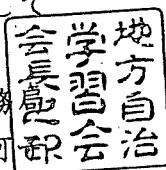 地方自治
学習会
会長印